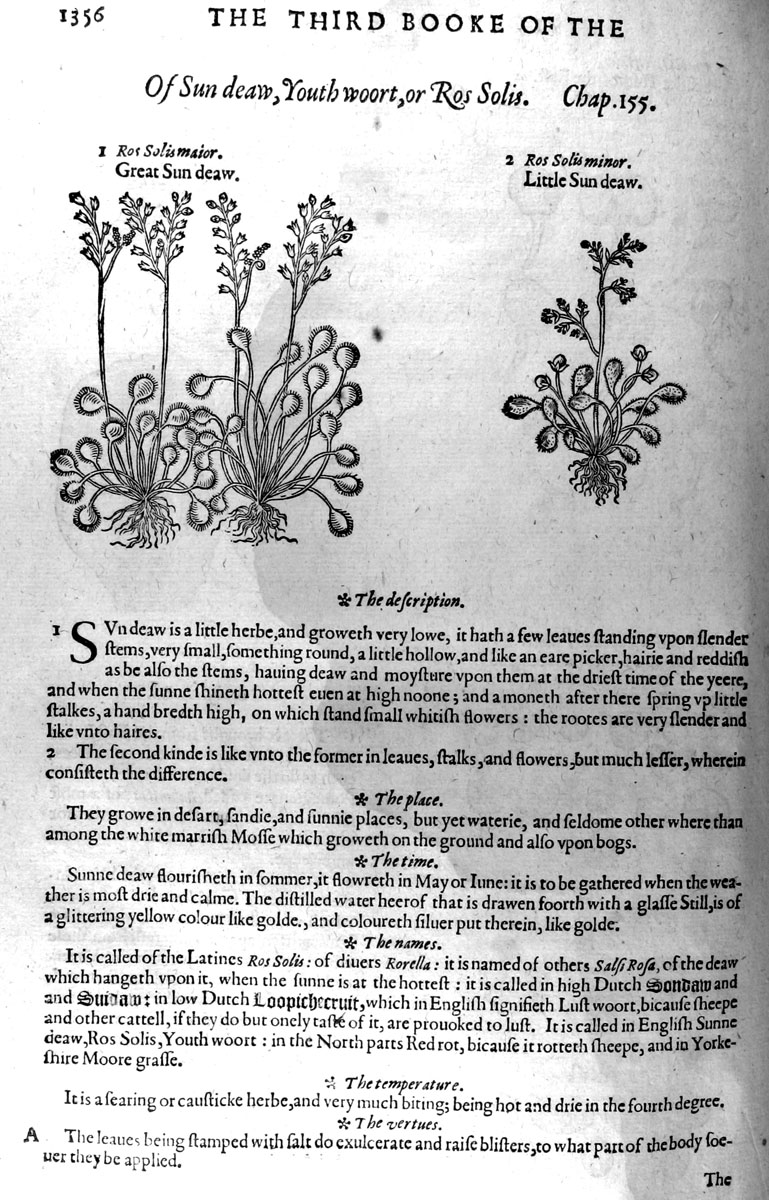 1356 THE THIRD BOOKE OF THE
Of Sun deaw, Youth woort, or Ros Solis. Chap. 155.
1 Ros Solis maior.
Great Sun deaw.
2 Ros Solis minor.
Little Sun deaw.
✻ The deſcription.
1 SVn deaw is a little herbe, and groweth very lowe, it hath a few leaues ſtanding vpon ſlender
ſtems, very ſmall, ſomething round, a little hollow, and like an eare picker, hairie and reddiſh
as be alſo the ſtems, hauing deaw and moyſture vpon them at the drieſt time of the yeere,
and when the ſunne ſhineth hotteſt euen at high noone; and a moneth after there ſpring vp little
ſtalkes, a hand bredth high, on which ſtand ſmall whitiſh flowers : the rootes are very ſlender and
like vnto haires.
2 The ſecond kinde is like vnto the former in leaues, ſtalks, and flowers, but much leſſer, wherein
conſiſteth the difference.
✻ The place.
They growe in deſart, ſandie, and ſunnie places, but yet waterie, and ſeldome other where than
among the white marriſh Moſſe which groweth on the ground and alſo vpon bogs.
✻ The time.
Sunne deaw flouriſheth in ſommer, it flowreth in May or Iune: it is to be gathered when the wea-
ther is moſt drie and calme. The diſtilled water heerof that is drawen foorth with a glaſſe Still, is of
a glittering yellow colour like golde., and coloureth ſiluer put therein, like golde.
✻ The names.
It is called of the Latines Ros Solis: of diuers Rorella: it is named of others Salſi Roſa, of the deaw
which hangeth vpon it, when the ſunne is at the hotteſt : it is called in high Dutch Sondaw and
and Sindaw: in low Dutch Loopichecruit, which in Engliſh ſignifieth Luſt woort, bicauſe ſheepe
and other cattell, if they do but onely taſte of it, are prouoked to luſt. It is called in Engliſh Sunne
deaw, Ros Solis, Youth woort : in the North parts Red rot, bicauſe it rotteth ſheepe, and in Yorke-
ſhire Moore graſſe.
✻ The temperature.
It is a ſearing or cauſticke herbe, and very much biting; being hot and drie in the fourth degree.
✻ The vertues.
A The leaues being ſtamped with ſalt do exulcerate and raiſe bliſters, to what part of the body ſoe-
uer they be applied.
The